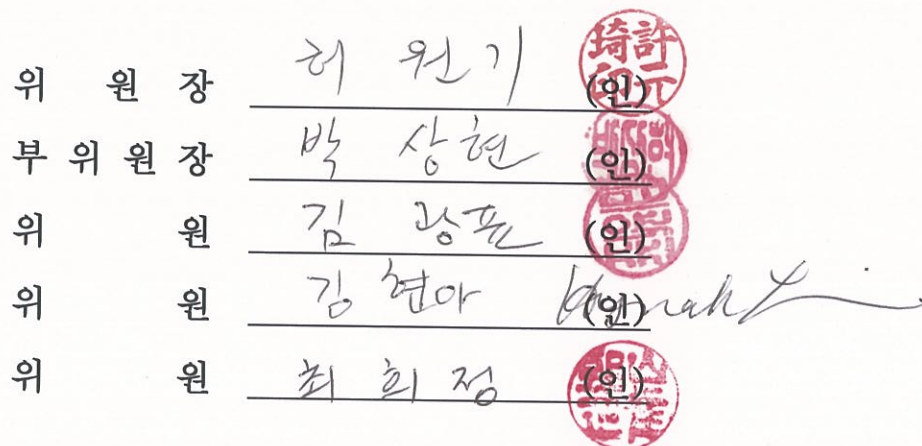 위 원 장 허 원 기 (인)
부 위 원 장 박 상 현 (인)
위 원 김 광 표 (인)
위 원 김 현 아 (인)
위 원 최 희 정 (인)